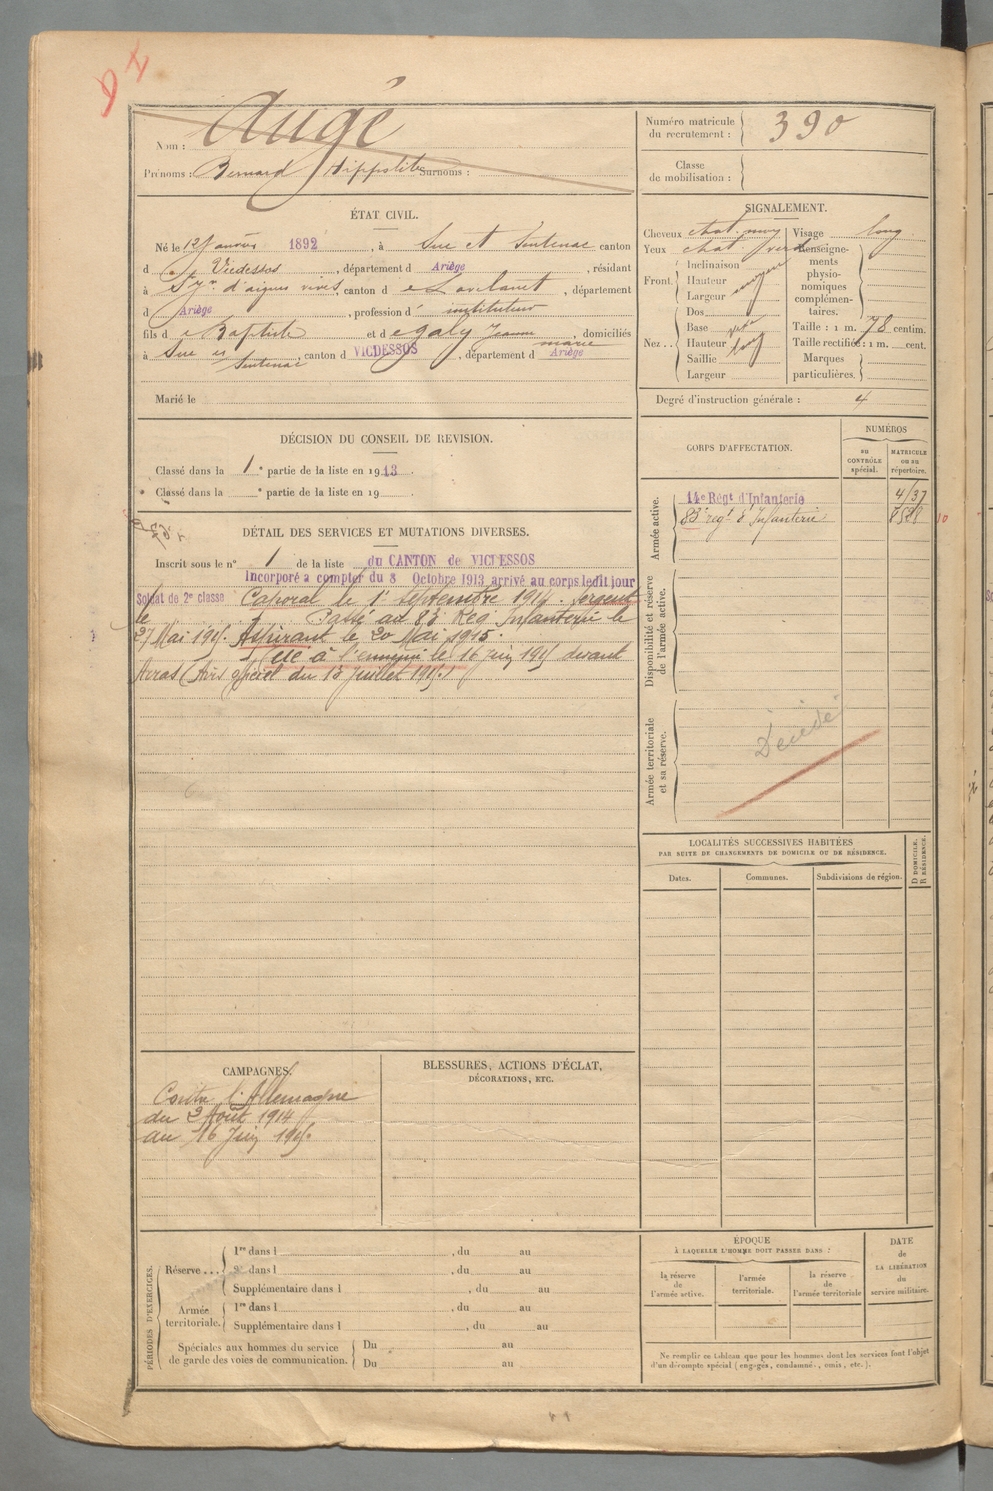 Nom : Augé
Prénoms : Bernard Hippolite Surnoms :
Numéro matricule du recrutement : 390
Classe de mobilisation :
ÉTAT CIVIL.
Né le 12 Janvier 1892, à Suc et Sentenac canton
d e Vicdessos, département d Ariège, résidant
à d'aigues vives, canton d e Lavelanet, département
d Ariège, profession d' instituteur
fils d e Baptiste et d e galy Jeanne marie, domiciliés
à Suc et Sentenac, canton d VICDESSOS, département d Ariège
Marié le
SIGNALEMENT.
Cheveux chat. moy
Yeux chat. verd
Front. Inclinaison
Hauteur moyen
Largeur
Nez.. Dos
Base
Hauteur long
Saillie
Largeur
Visage long
Renseignements physionomiques complémentaires.
Taille : 1 m. 78 centim.
Taille rectifiée : 1 m. cent.
Marques particulières.
Degré d'instruction générale : 4
DÉCISION DU CONSEIL DE REVISION.
Classé dans la 1e partie de la liste en 1913.
Classé dans la e partie de la liste en 19
CORPS D'AFFECTATION.
NUMÉROS
au CONTRÔLE spécial.
MATRICULE ou au répertoire.
Armée active.
14e Régt d'Infanterie
83e régt d'Infanterie
Disponibilité et réserve de l'armée active.
Armée territoriale et sa réserve.
Décédé
DÉTAIL DES SERVICES ET MUTATIONS DIVERSES.
Inscrit sous le n° 1 de la liste du CANTON de VICDESSOS
Incorporé à compter du 8 Octobre 1913 arrivé au corps ledit jour
Soldat de 2e classe Caporal le 1er Septembre 1914. Sergent
le Passé au 83 Reg Infanterie le
27 Mai 1915. Aspirant le 20 Mai 1915.
Tué à l'ennemi le 16 juin 1915 devant
Arras (Avis officiel du 13 juillet 1915.)
LOCALITÉS SUCCESSIVES HABITÉES
PAR SUITE DE CHANGEMENTS DE DOMICILE OU DE RÉSIDENCE.
Dates.
Communes.
Subdivisions de région.
D DOMICILE. R RÉSIDENCE.
CAMPAGNES.
Contre l'Allemagne
du 2 Août 1914
au 16 Juin 1915.
BLESSURES, ACTIONS D'ÉCLAT,
DÉCORATIONS, ETC.
PÉRIODES D'EXERCICES.
Réserve... 1re dans l , du au
2e dans l , du au
Supplémentaire dans l , du au
Armée territoriale. 1re dans l , du au
Supplémentaire dans l , du au
Spéciales aux hommes du service de garde des voies de communication. Du au
Du au
ÉPOQUE
À LAQUELLE L'HOMME DOIT PASSER DANS :
la réserve de l'armée active.
l'armée territoriale.
la réserve de l'armée territoriale
DATE de LA LIBÉRATION du service militaire.
Ne remplir ce tableau que pour les hommes dont les services font l'objet
d'un décompte spécial (engagés, condamnés, omis, etc.).